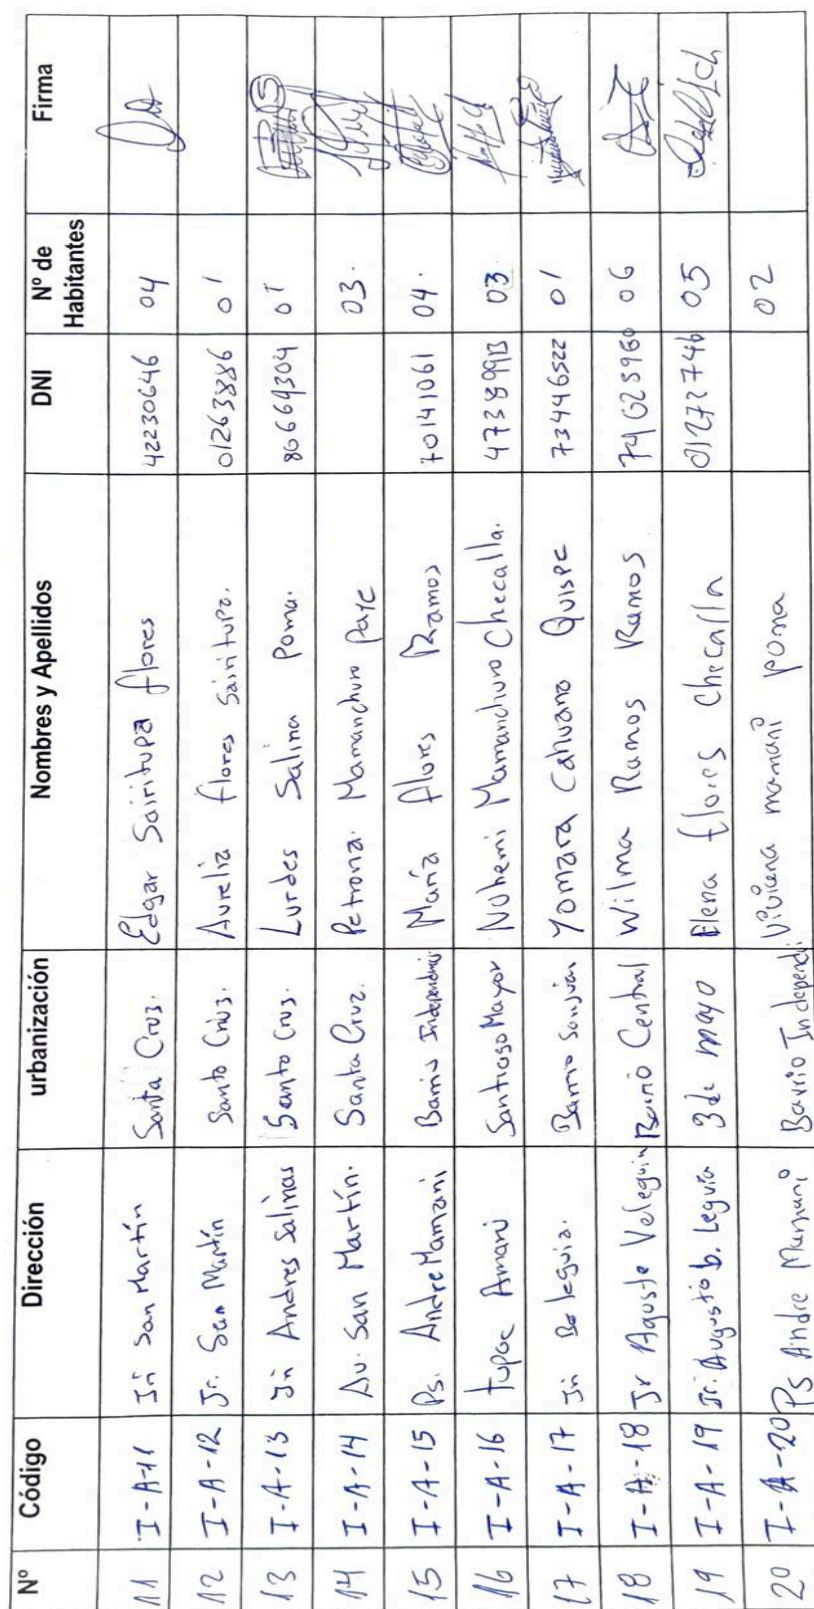 Nº Código Dirección urbanización Nombres y Apellidos DNI Nº de Habitantes Firma
11 I-A-11 Jr San Martín Santa Cruz. Edgar Sairitupa flores 42230646 04
12 I-A-12 Jr. San Martín Santa Cruz. Aurelia flores Sairitupa. 01263886 01
13 I-A-13 Jr Andres Salinas Santa Cruz. Lurdes Salina Poma. 80669304 01
14 I-A-14 Av. San Martín. Santa Cruz. Petrona Mamanchuro Payc 03.
15 I-A-15 Ps. Andre Mamani Barrio Independencia María flores Ramos 70141061 04.
16 I-A-16 tupac Amaru Santiago Mayor Nohemi Mamanchuro Checalla. 47389913 03
17 I-A-17 Jr Leguia. Barrio San juan Yomara Cahuana Quispe 73446522 01
18 I-A-18 Jr Agusto Veleguia Barrio Central Wilma Ramos Ramos 06
19 I-A-19 Jr. Augusto b. Leguía 3 de mayo Elena flores Checalla 01272746 05
20 I-A-20 Ps Andre Mamani Barrio Independ. Viviana mamani poma 02